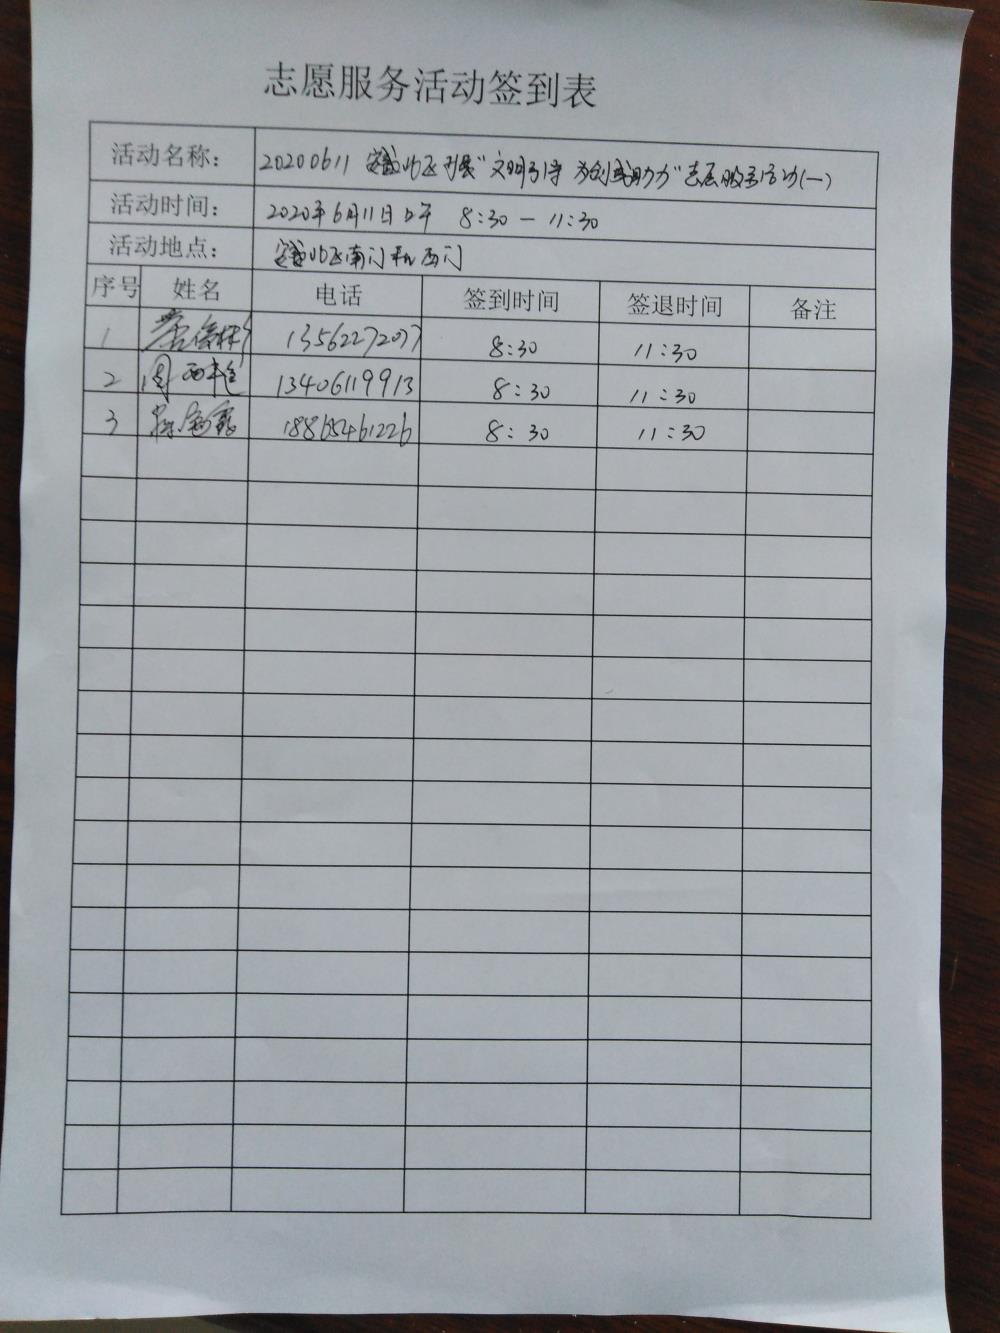 志愿服务活动签到表
活动名称： 20200611 开展"文明引导 为创城助力"志愿服务活动(一)
活动时间： 2020年6月11日上午 8:30 — 11:30
活动地点： 南门和西门
序号 姓名 电话 签到时间 签退时间 备注
1 13562272077 8:30 11:30
2 周 13406119913 8:30 11:30
3 18865461226 8:30 11:30